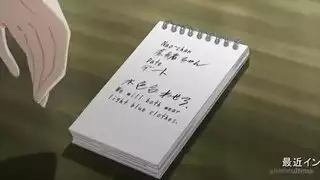 Nao-chan
Date
デート
水色あわせる。
We will both wear
light blue clothes.
最近イン